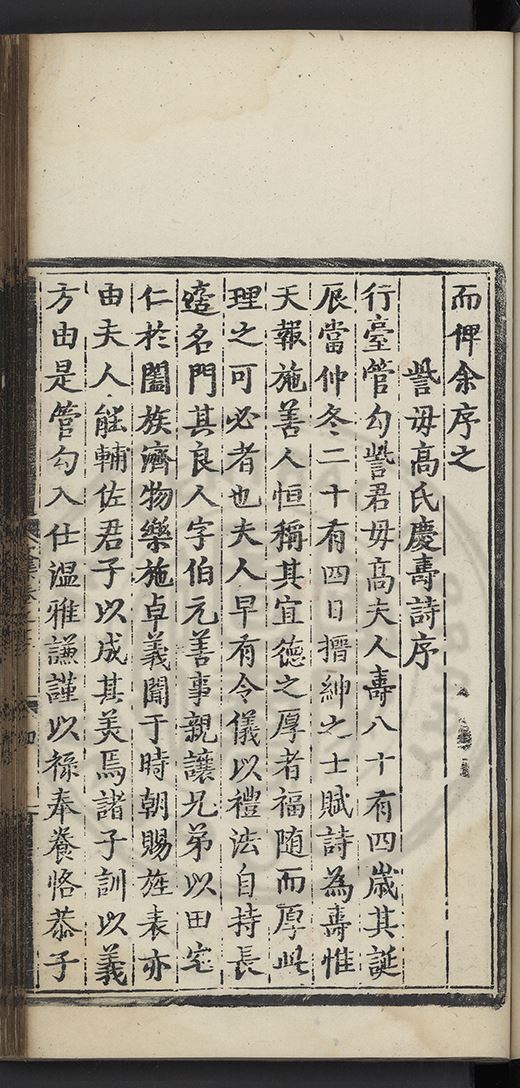 而俾余序之
訾母高氏慶壽詩序
行臺管勾訾君母高夫人壽八十有四歲其誕
辰當仲冬二十有四日搢紳之士賦詩為壽惟
天報施善人恒稱其宜德之厚者福随而厚此
理之可必者也夫人早有令儀以禮法自持長
適名門其良人字伯元善事親讓兄弟以田宅
仁於闔族濟物樂施卓義聞于時朝賜旌表亦
由夫人能輔佐君子以成其美焉諸子訓以義
方由是管勾入仕温雅謙謹以禄奉養恪恭子